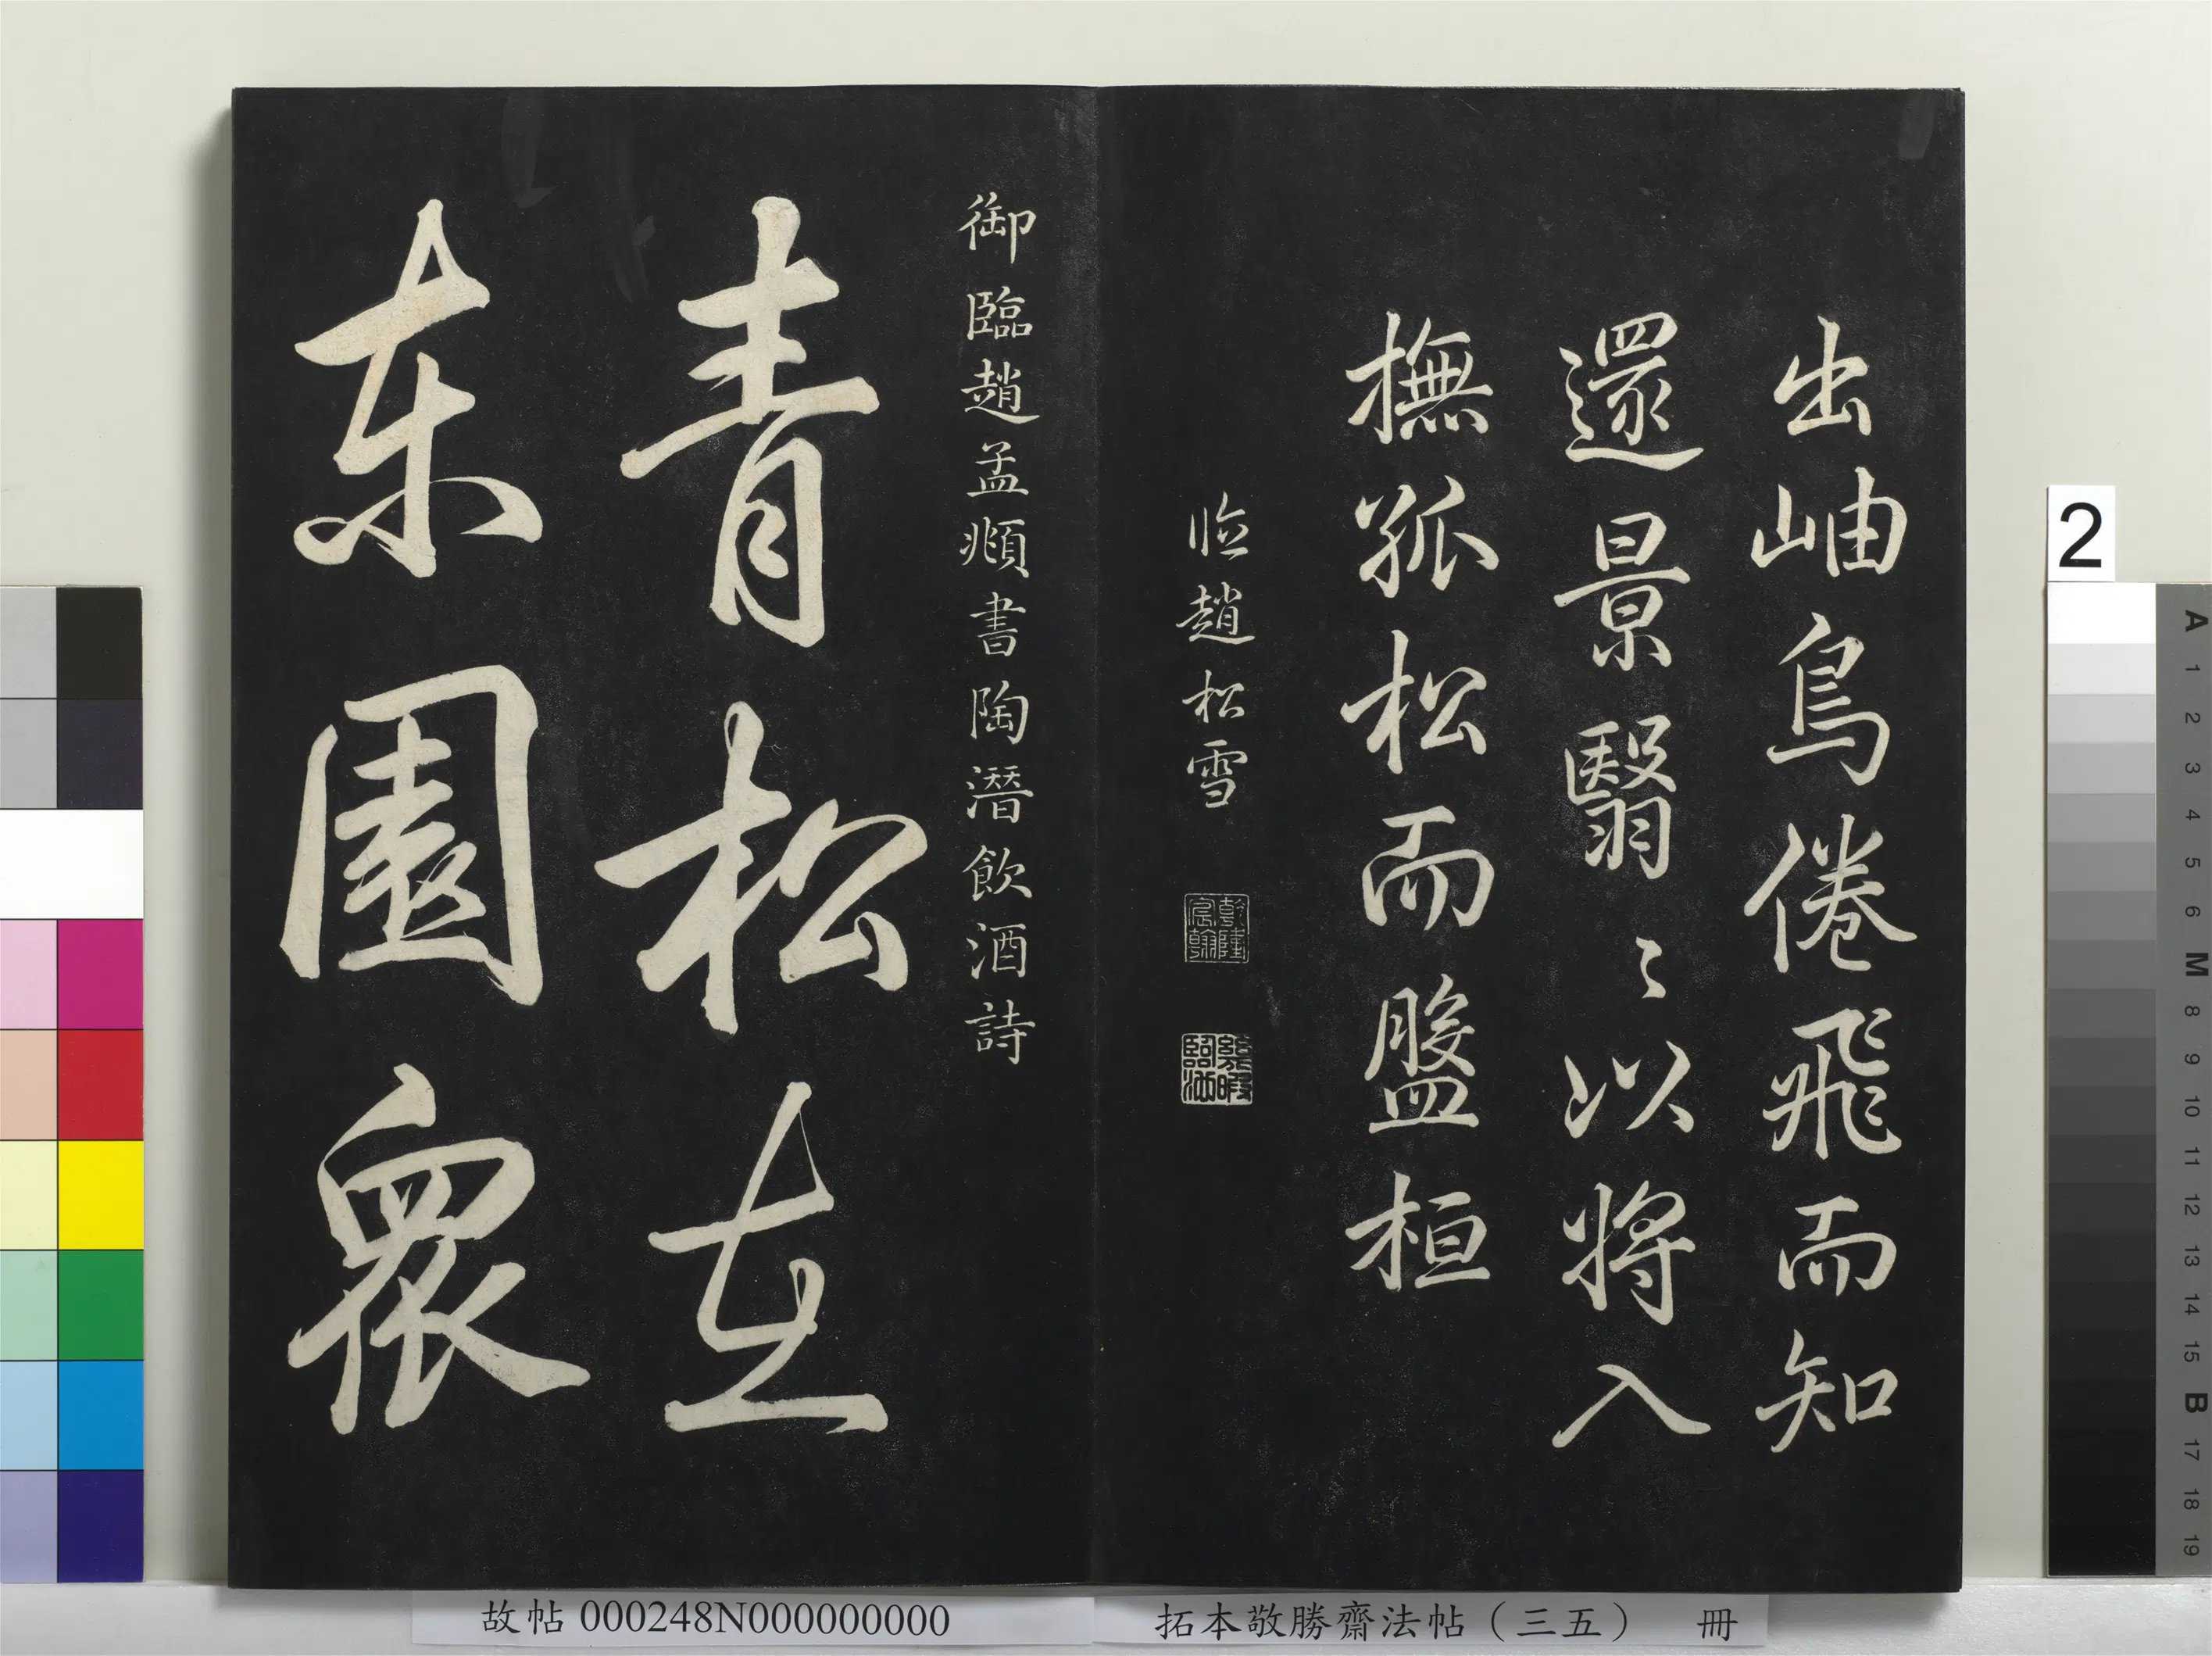 出岫鳥倦飛而知
還景翳〻以將入
撫孤松而盤桓
臨趙松雪
乾隆宸翰
幾暇臨池
御臨趙孟頫書陶潛飲酒詩
青松在
東園衆
故帖 000248N000000000
拓本敬勝齋法帖（三五） 冊
2
A
1
2
3
4
5
6
M
8
9
10
11
12
13
14
15
B
17
18
19